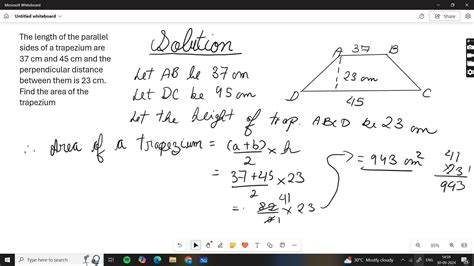 Microsoft Whiteboard
Untitled whiteboard
Share
The length of the parallel
sides of a trapezium are
37 cm and 45 cm and the
perpendicular distance
between them is 23 cm.
Find the area of the
trapezium
Solution
Let AB be 37 cm
Let DC be 45 cm
Let the height of trap. ABCD be 23 cm
A 37 B
23 cm
D 45 C
∴ Area of a trapezium = (a+b)/2 × h
= 37+45/2 × 23
= 82/2 × 23
41
1
= 943 cm²
41
× 23
943
85%
Type here to search
30°C Mostly cloudy
ENG
14:59
30-09-2024